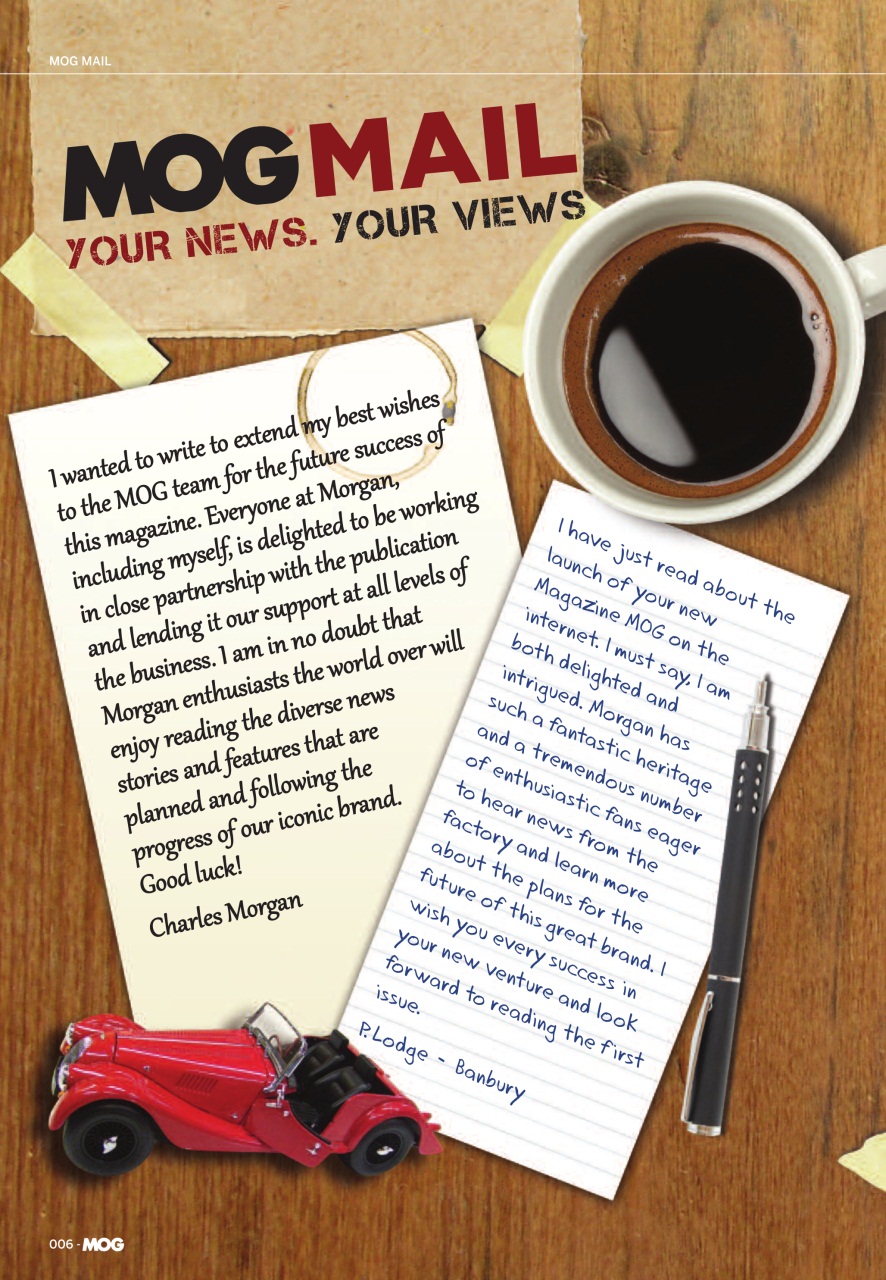 MOG MAIL
MOG MAIL
YOUR NEWS. YOUR VIEWS
I wanted to write to extend my best wishes
to the MOG team for the future success of
this magazine. Everyone at Morgan,
including myself, is delighted to be working
in close partnership with the publication
and lending it our support at all levels of
the business. I am in no doubt that
Morgan enthusiasts the world over will
enjoy reading the diverse news
stories and features that are
planned and following the
progress of our iconic brand.
Good luck!
Charles Morgan
I have just read about the
launch of your new
Magazine MOG on the
internet. I must say, I am
both delighted and
intrigued. Morgan has
such a fantastic heritage
and a tremendous number
of enthusiastic fans eager
to hear news from the
factory and learn more
about the plans for the
future of this great brand. I
wish you every success in
your new venture and look
forward to reading the first
issue.
P.Lodge - Banbury
006 - MOG